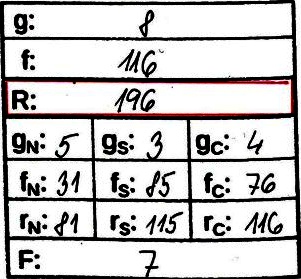 g: 8
f: 116
R: 196
gN: 5 gS: 3 gC: 4
fN: 31 fS: 85 fC: 76
rN: 81 rS: 115 rC: 116
F: 7